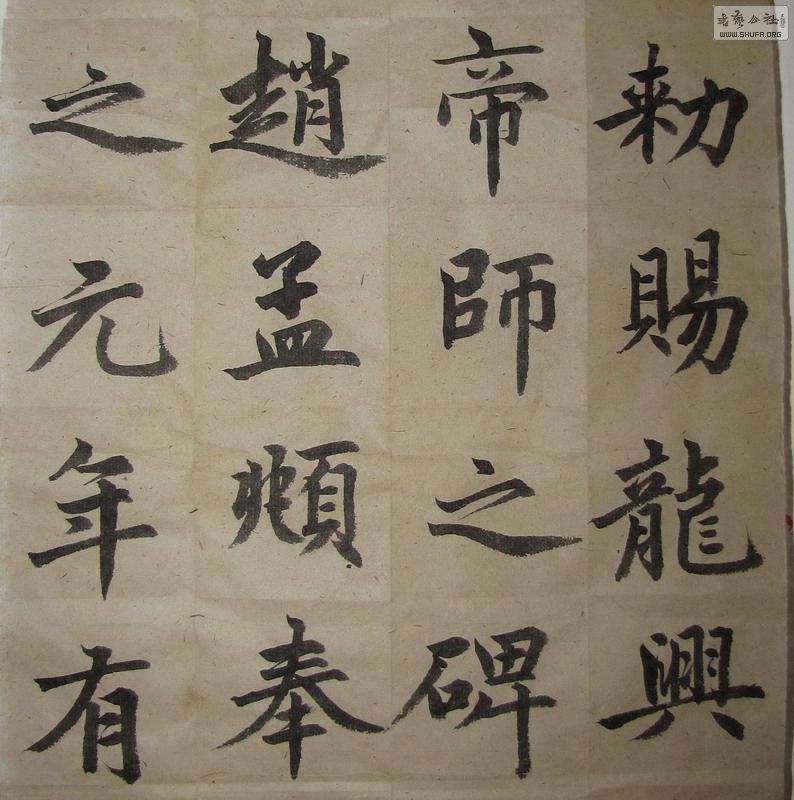 勅賜龍興
帝師之碑
趙孟頫奉
之元年有
書藝公社
WWW.SHUFA.ORG